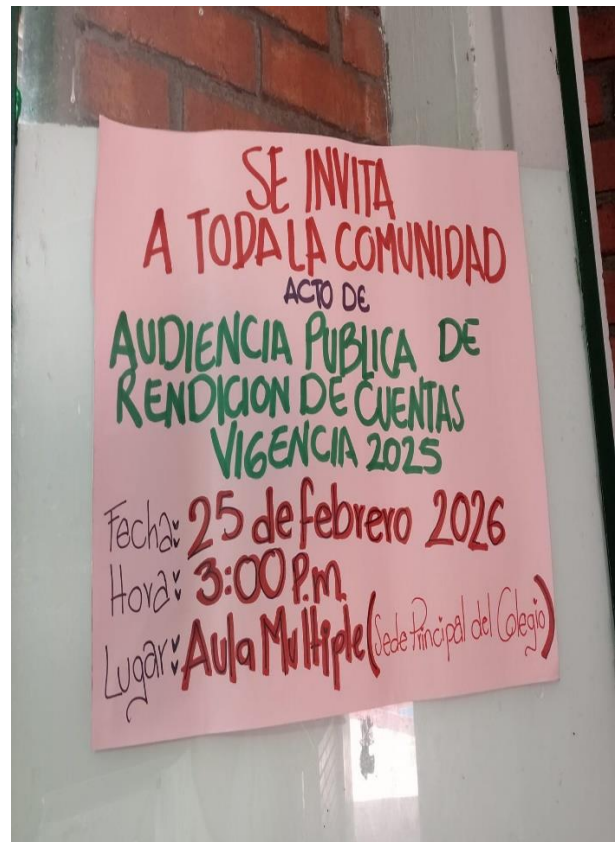 SE INVITA
A TODA LA COMUNIDAD
ACTO DE
AUDIENCIA PUBLICA DE
RENDICION DE CUENTAS
VIGENCIA 2025
Fecha: 25 de febrero 2026
Hora: 3:00 P.m.
Lugar: Aula Multiple (Sede Principal del Colegio)